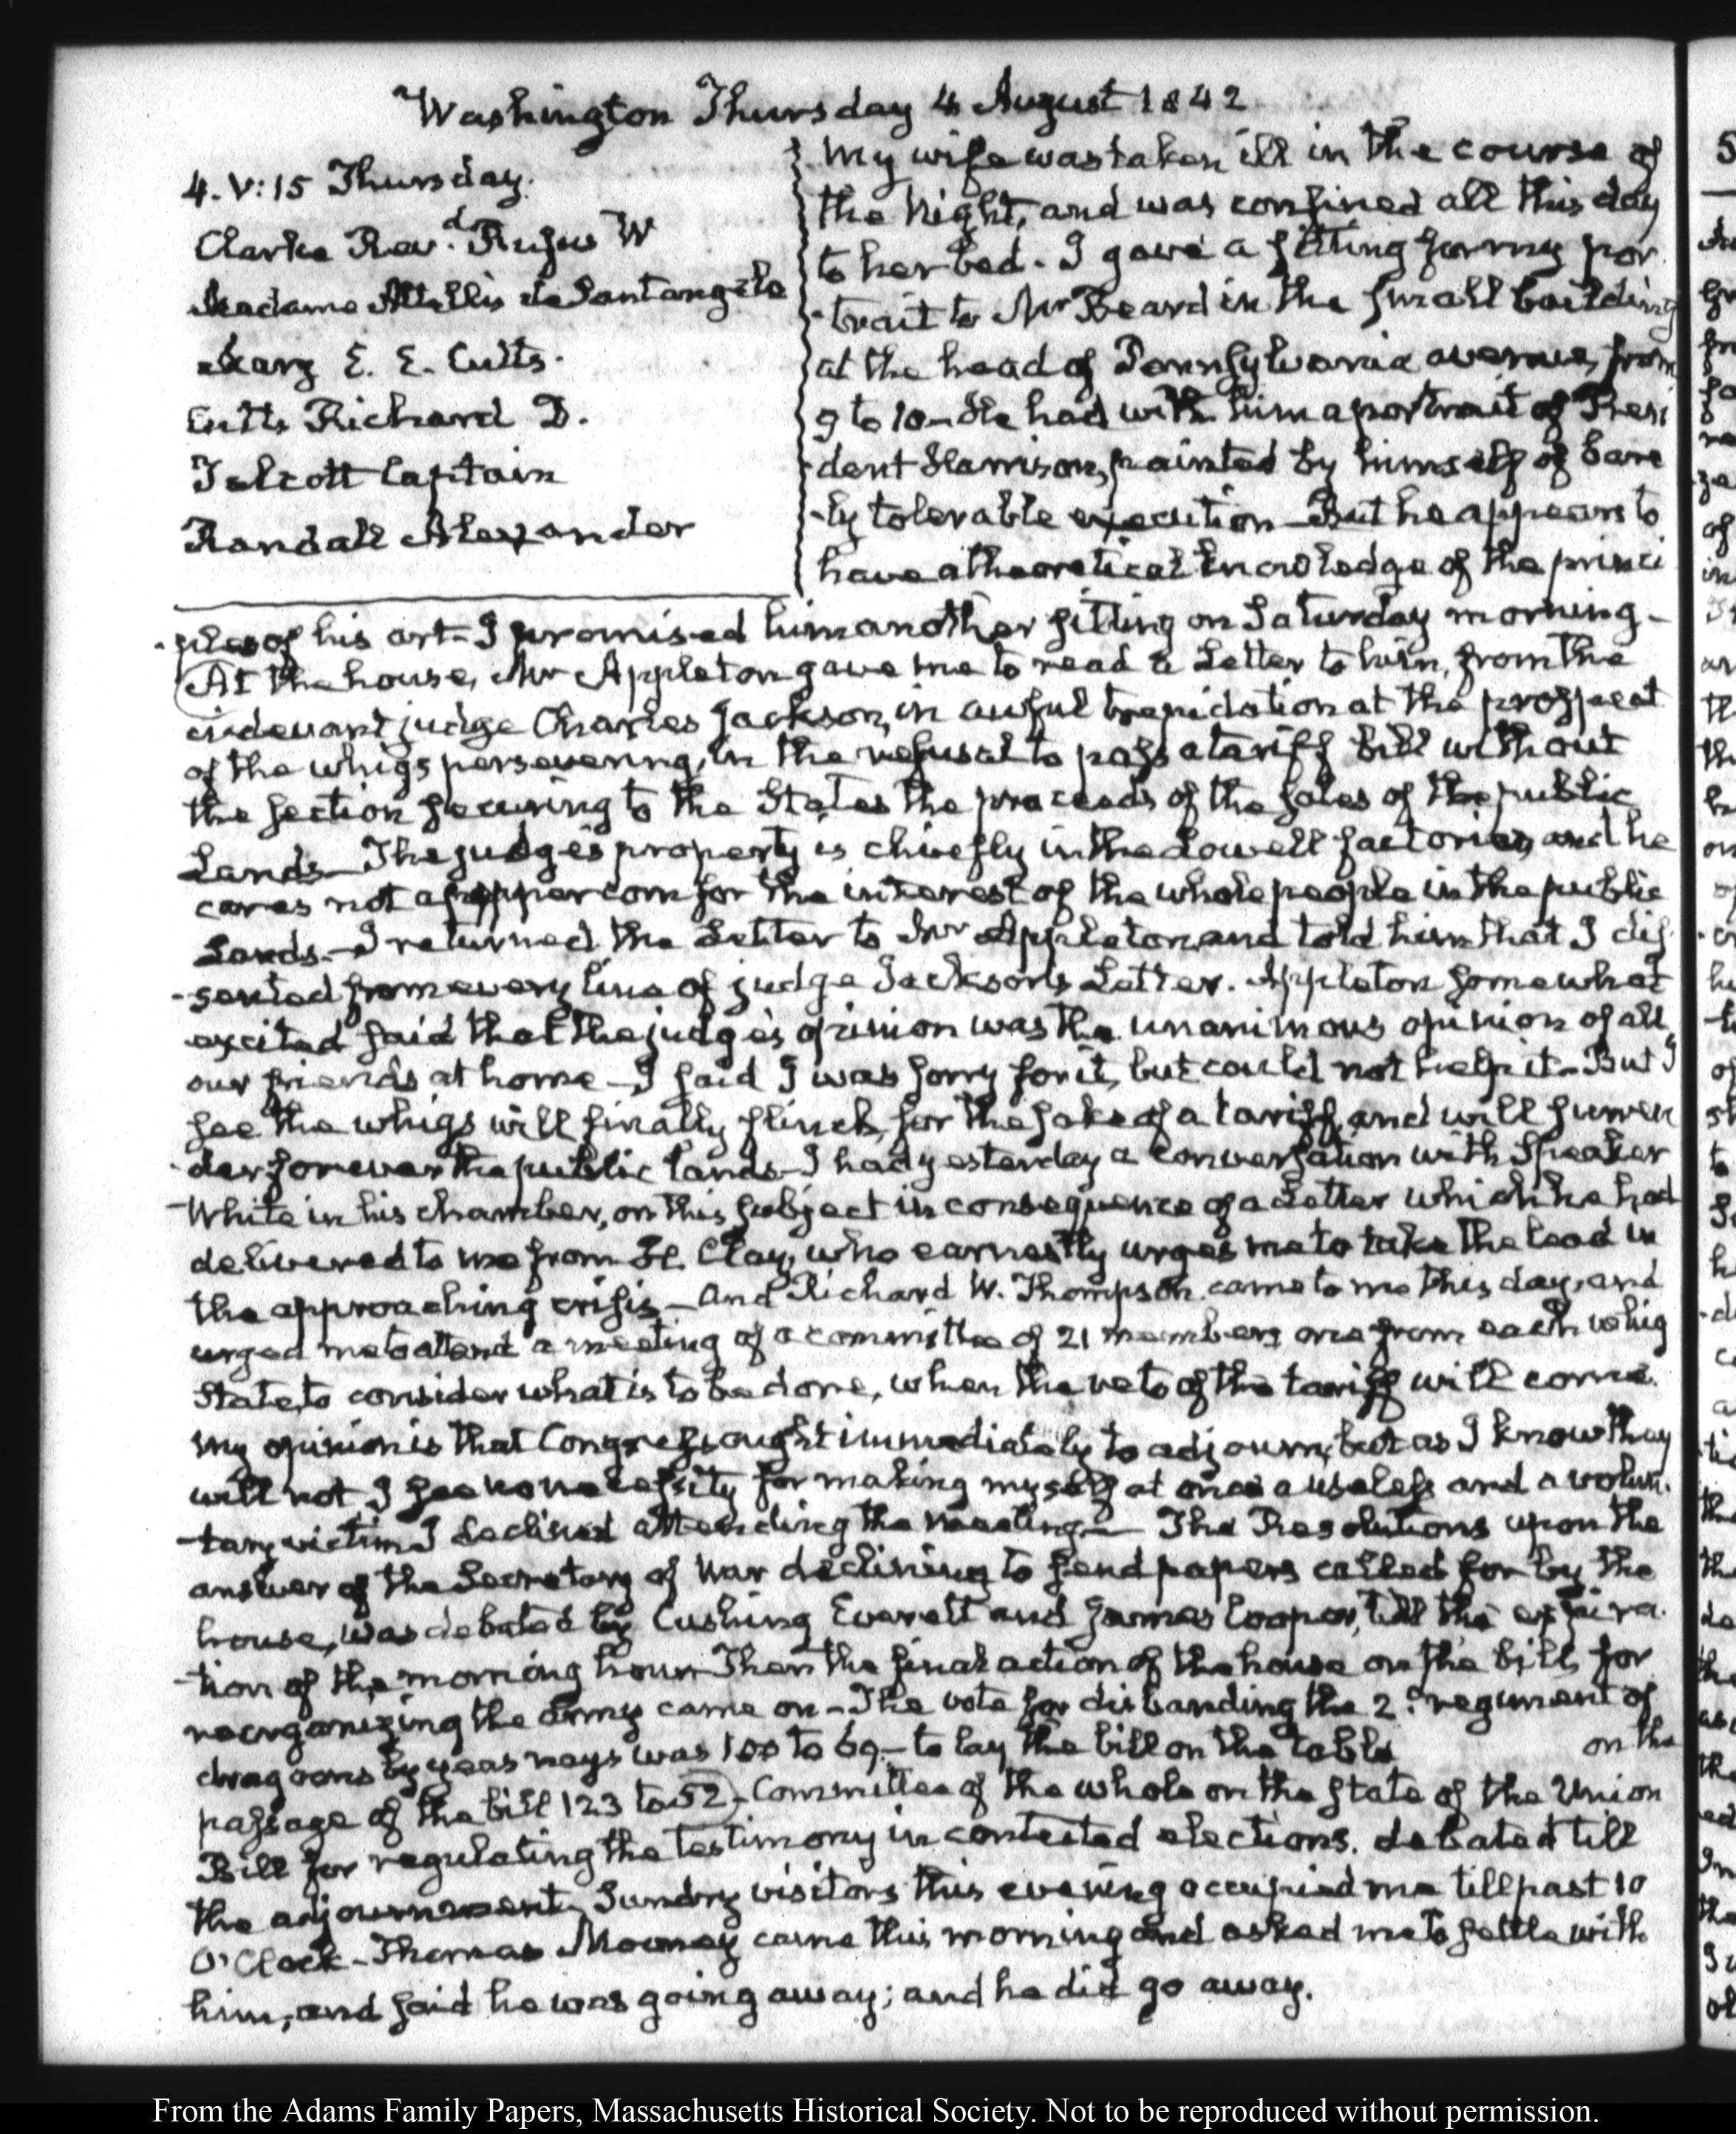 Washington Thursday 4 August 1842
4. V:15 Thursday.
Clarke Rev.d Rufus W
Madame Attellis de Santangelo
Mary E. E. Cutts.
Cutts Richard D.
Talcott Captain
Randall Alexander
My wife was taken ill in the course of
the Night, and was confined all this day
to her bed. I gave a sitting for my por
-trait to Mr Beard in the small building
at the head of Pennsylvania avenue, from
9 to 10 - He had with him a portrait of Presi
-dent Harrison, painted by himself of bare
-ly tolerable execution - But he appears to
have a theoretical knowledge of the princi
-ples of his art - I promised him another sitting on Saturday morning -
At the house, Mr Appleton gave me to read a Letter to him, from the
cidevant judge Charles Jackson, in awful trepidation at the prospect
of the whigs persevering, in the refusal to pass a tariff bill without
the section securing to the States the proceeds of the sales of the public
Lands - The judge's property is chiefly in the Lowell factories, and he
cares not a pepper corn for the interest of the whole people in the public
Lands. - I returned the Letter to Mr Appleton and told him that I dis
-sented from every line of judge Jackson's Letter. Appleton somewhat
excited said that the judge's opinion was the unanimous opinion of all
our friends at home - I said I was sorry for it, but could not help it - But I
see the whigs will finally flinch, for the sake of a tariff, and will surren
-der forever the public lands - I had yesterday a conversation with Speaker
White in his chamber, on this subject in consequence of a Letter which he had
delivered to me from H. Clay, who earnestly urges me to take the lead in
the approaching crisis - and Richard W. Thompson came to me this day, and
urged me to attend a meeting of a committee of 21 members one from each whig
State, to consider what is to be done, when the veto of the tariff will come.
My opinion is that Congress ought immediately to adjourn; but as I know they
will not I see no necessity for making myself at once a useless and a volun
-tary victim I declined attending the meeting - The Resolutions upon the
answer of the Secretary of War declining to send papers called for by the
house, was debated by Cushing Everett and James Cooper, till the expira
-tion of the morning hour Then the final action of the house on the bill, for
reorganizing the Army came on - The vote for disbanding the 2.d regiment of
dragoons by yeas nays was 100 to 69 - to lay the bill on the table on the
passage of the bill 123 to 52 - Committee of the whole on the State of the Union
Bill for regulating the testimony in contested elections. debated till
the adjournment. Sundry visitors this evening occupied me till past 10
O'Clock - Thomas Mooney came this morning and asked me to settle with
him, and said he was going away; and he did go away.
From the Adams Family Papers, Massachusetts Historical Society. Not to be reproduced without permission.